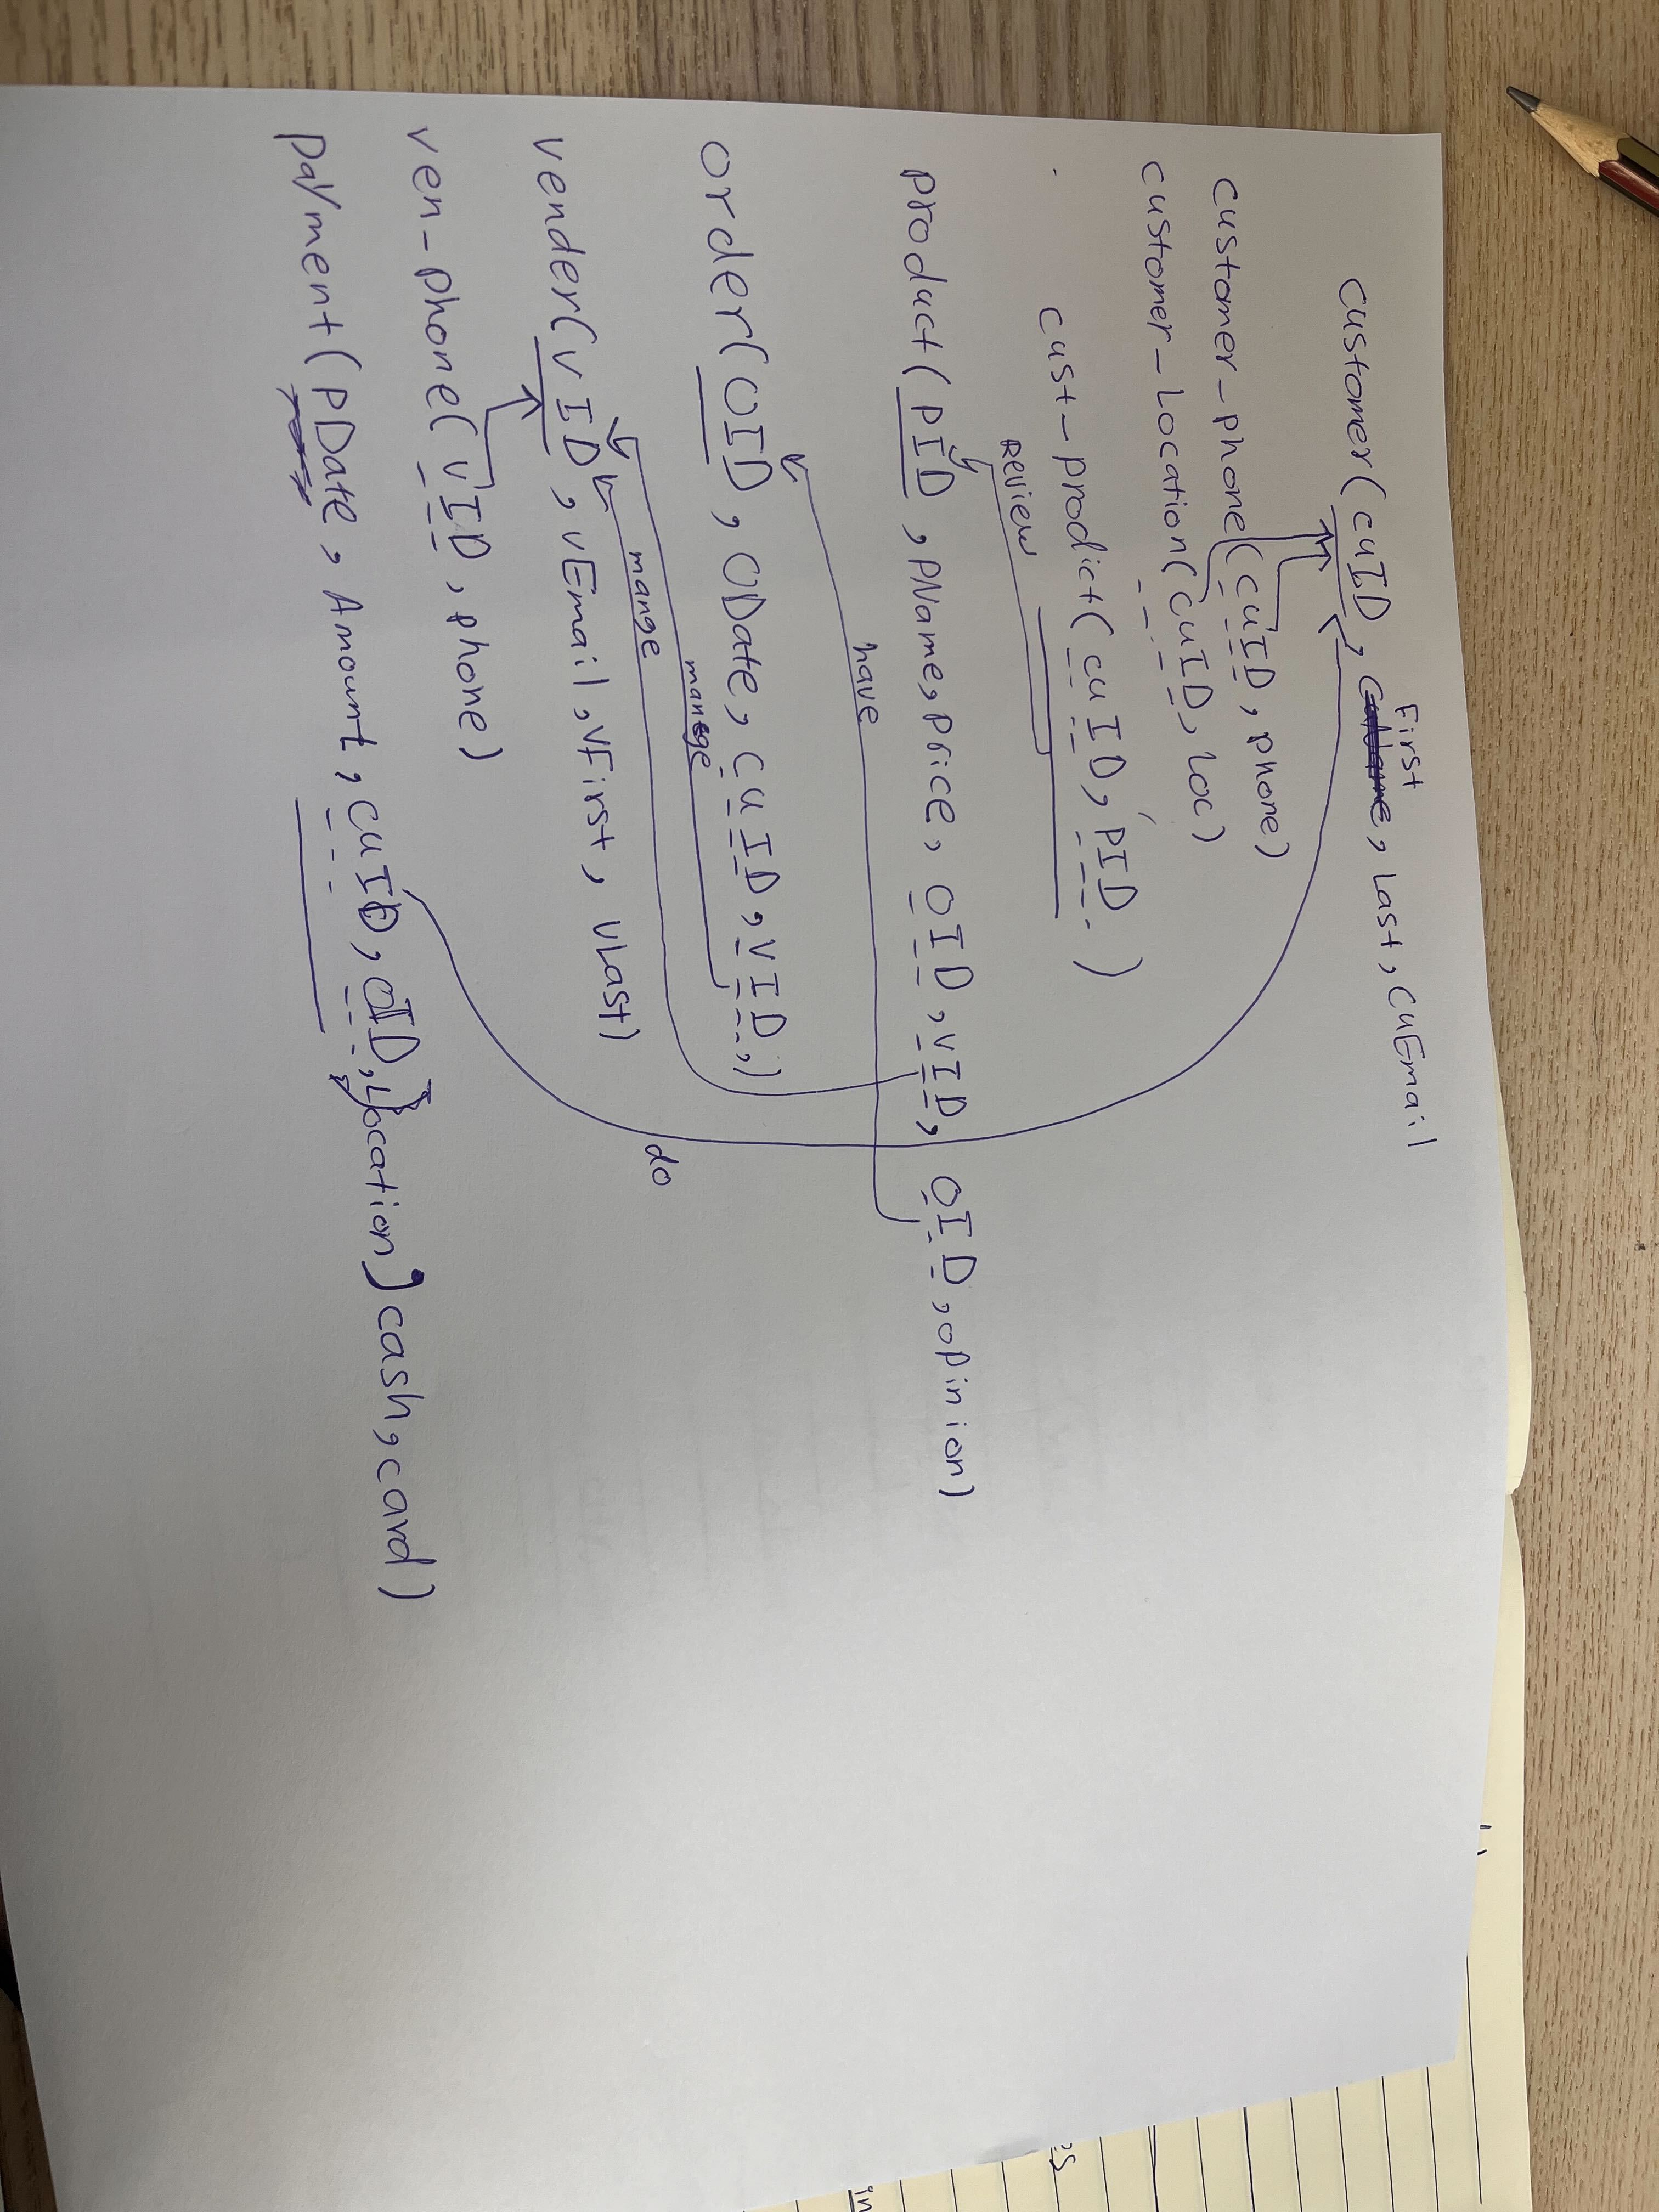 First
Customer(cuID, , Last, cuEmail
customer_phone(cuID, phone)
customer_Location(cuID, Loc)
cust_prodict(cuID, PID)
Review
product(PID, PName, price, OID, VID, OID, opinion)
have
order(OID, ODate, cuID, VID,)
mange
mange
vender(VID, vEmail, vFirst, vLast)
do
ven_phone(VID, phone)
payment(PDate, Amount, cuID, OID, Location) cash, card)
es
in